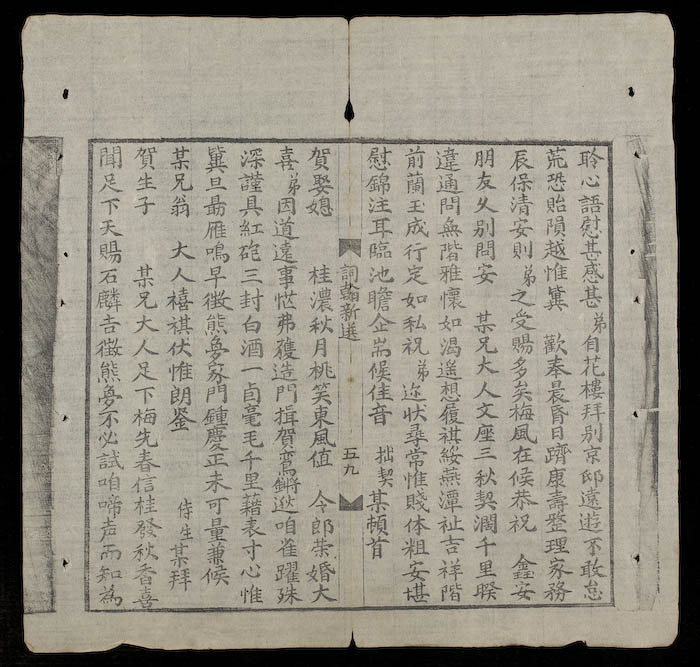 聆心語慰甚感甚弟自花樓拜別京邸遠遊不敢怠
荒恐貽隕越惟冀 歡奉晨昏日躋康壽整理家務
辰保清安則弟之受賜多矣梅風在候恭祝 鑫安
朋友久别問安 某兄大人文座三秋契濶千里暌
違通問無階雅懷如渴遥想履祺綏燕潭祉吉祥階
前蘭玉成行定如私祝弟迩狀尋常惟賤体粗安堪
慰錦注耳臨池瞻企耑候佳音 拙契某頓首
詞翰新選 五九
賀娶媳 桂濃秋月桃笑東風值 令郎荣婚大
喜弟因道遠事愆弗獲造門揖賀鸞鏘逖咱雀躍殊
深謹具紅砲三封白酒一卣毫毛千里藉表寸心惟
冀旦昜雁鳴早徵熊夢家門鍾慶正未可量兼候
某兄翁 大人禧祺伏惟朗鉴 侍生某拜
賀生子 某兄大人足下梅先春信桂發秋香喜
聞足下天賜石麟吉徵熊夢不必試咱啼声而知為